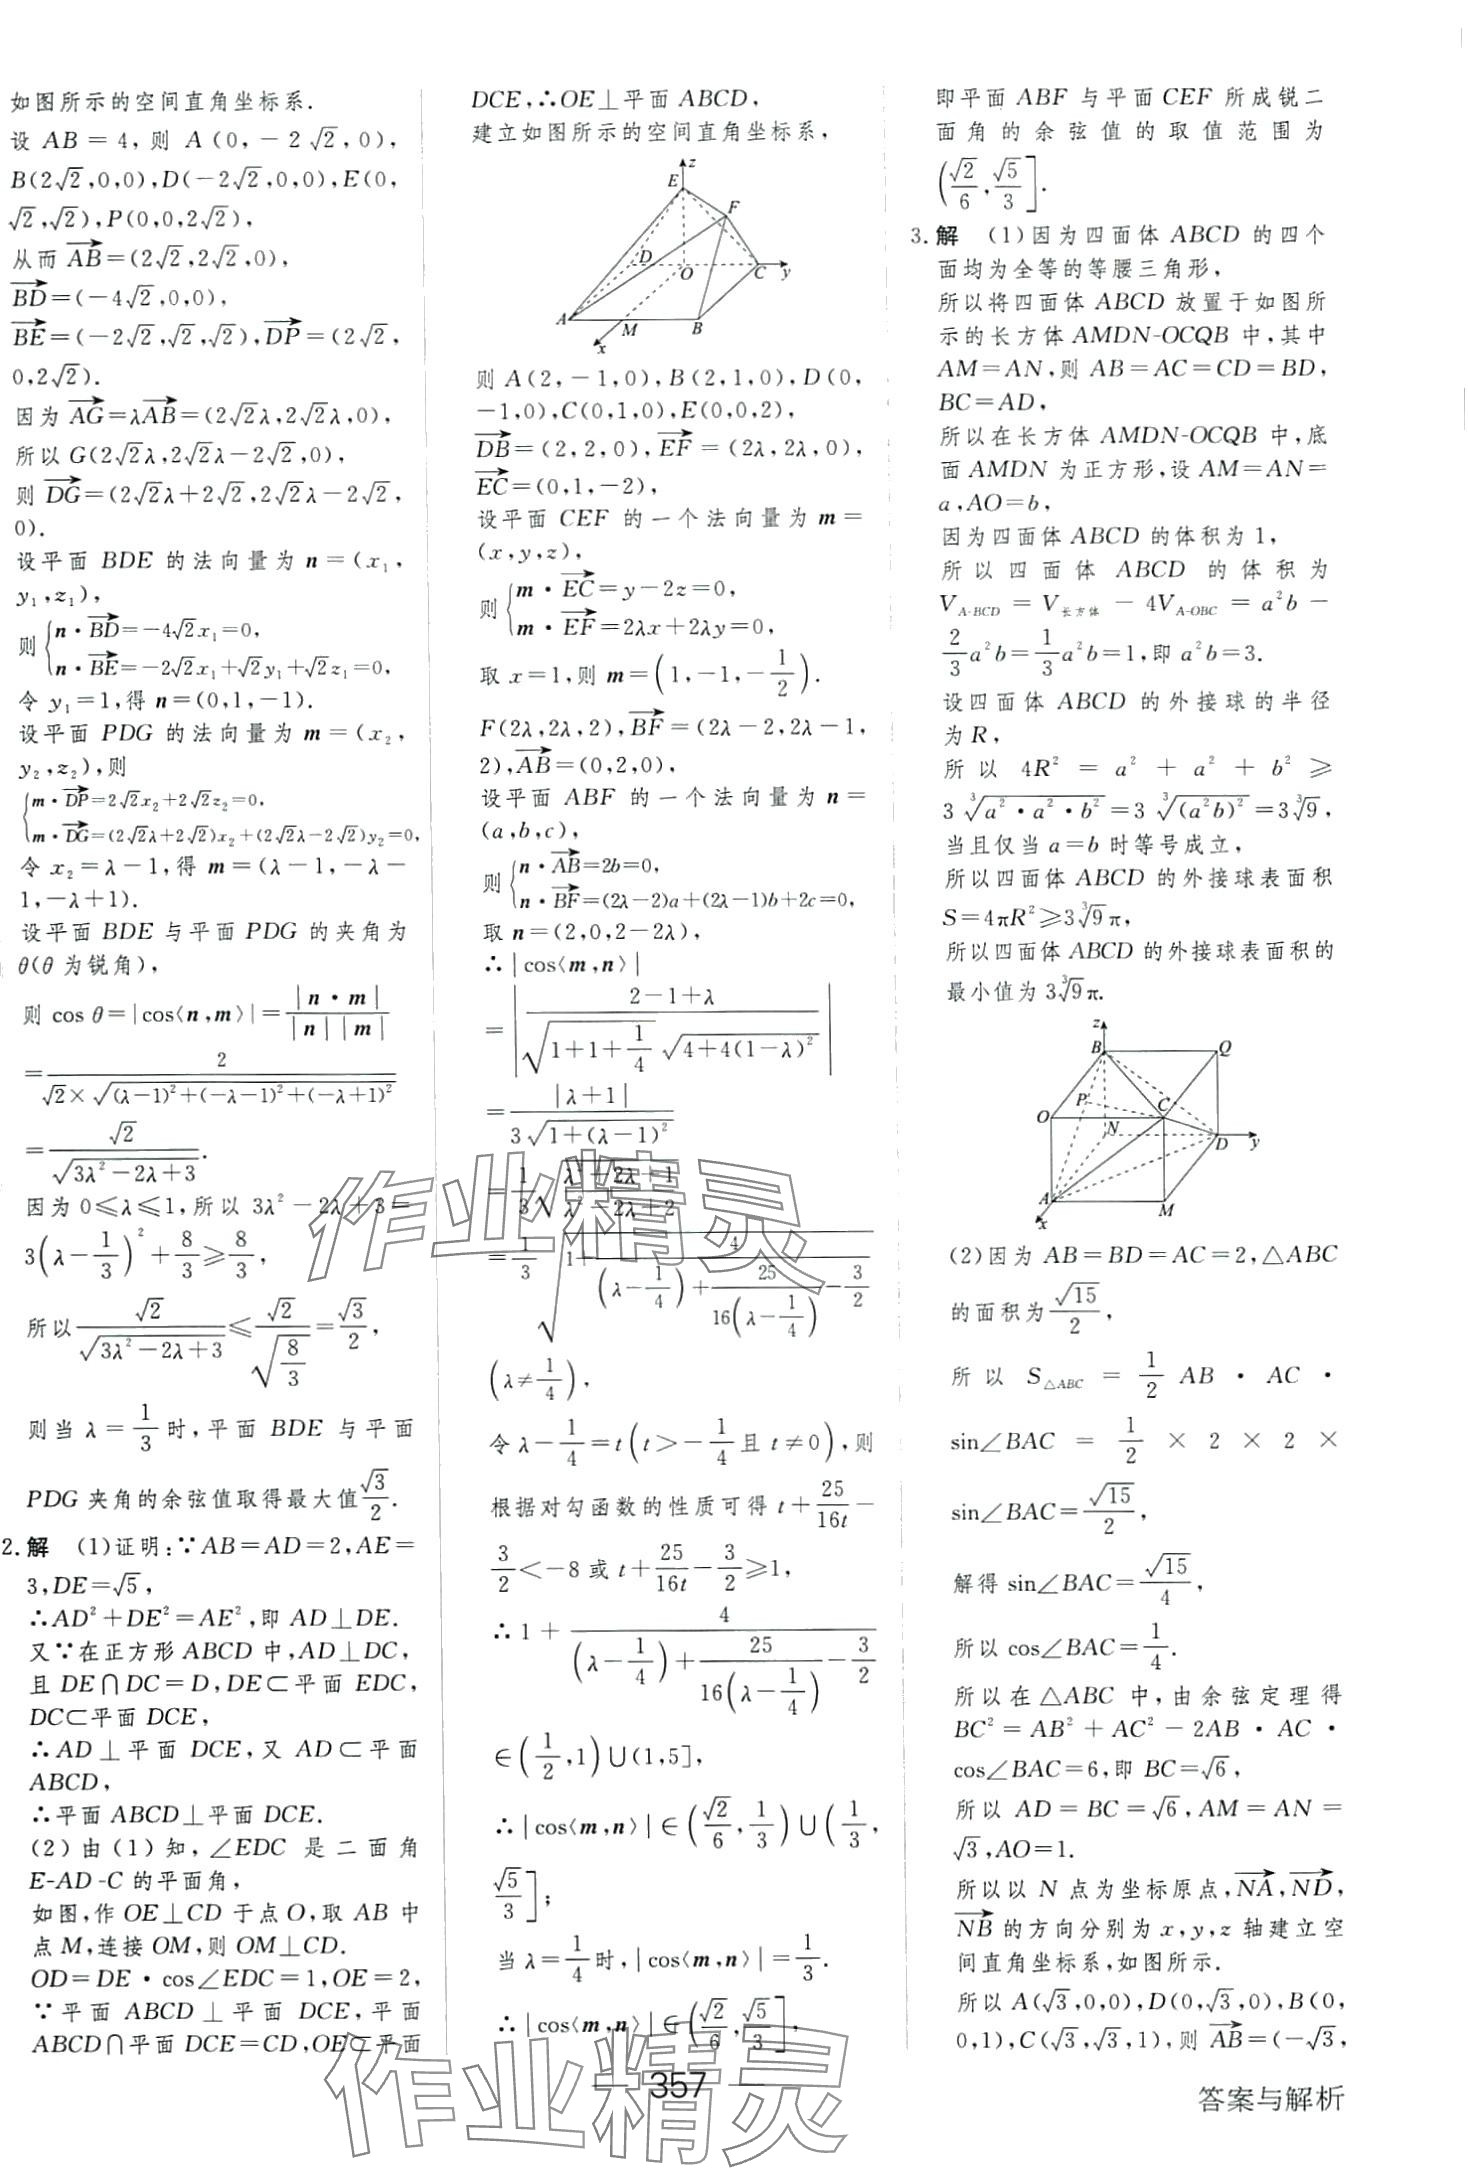 如图所示的空间直角坐标系.
设 AB = 4, 则 A (0, −2√2, 0),
B(2√2,0,0),D(−2√2,0,0),E(0,
√2,√2),P(0,0,2√2),
从而 AB→=(2√2,2√2,0),
BD→=(−4√2,0,0),
BE→=(−2√2,√2,√2),DP→=(2√2,
0,2√2).
因为 AG→=λAB→=(2√2λ,2√2λ,0),
所以 G(2√2λ,2√2λ−2√2,0),
则 DG→=(2√2λ+2√2,2√2λ−2√2,
0).
设平面 BDE 的法向量为 n=(x₁,
y₁,z₁),
则 {n·BD→=−4√2x₁=0,
n·BE→=−2√2x₁+√2y₁+√2z₁=0,
令 y₁=1,得 n=(0,1,−1).
设平面 PDG 的法向量为 m=(x₂,
y₂,z₂),则
{m·DP→=2√2x₂+2√2z₂=0,
m·DG→=(2√2λ+2√2)x₂+(2√2λ−2√2)y₂=0,
令 x₂=λ−1,得 m=(λ−1,−λ−
1,−λ+1).
设平面 BDE 与平面 PDG 的夹角为
θ(θ 为锐角),
则 cos θ=|cos⟨n,m⟩|=|n·m|/(|n||m|)
=2/(√2×√((λ−1)²+(−λ−1)²+(−λ+1)²))
=√2/√(3λ²−2λ+3).
因为 0≤λ≤1,所以 3λ²−2λ+3=
3(λ−1/3)²+8/3≥8/3,
所以 √2/√(3λ²−2λ+3)≤√2/√(8/3)=√3/2,
则当 λ=1/3 时,平面 BDE 与平面
PDG 夹角的余弦值取得最大值√3/2.
2.解 (1)证明:∵AB=AD=2,AE=
3,DE=√5,
∴AD²+DE²=AE²,即 AD⊥DE.
又∵在正方形 ABCD 中,AD⊥DC,
且 DE∩DC=D,DE⊂平面 EDC,
DC⊂平面 DCE,
∴AD⊥平面 DCE,又 AD⊂平面
ABCD,
∴平面 ABCD⊥平面 DCE.
(2)由(1)知,∠EDC 是二面角
E-AD-C 的平面角,
如图,作 OE⊥CD 于点 O,取 AB 中
点 M,连接 OM,则 OM⊥CD.
OD=DE·cos∠EDC=1,OE=2,
∵平面 ABCD⊥平面 DCE,平面
ABCD∩平面 DCE=CD,OE⊂平面
DCE,∴OE⊥平面 ABCD,
建立如图所示的空间直角坐标系,
z
E
F
D
O
C
y
A
M
B
x
则 A(2,−1,0),B(2,1,0),D(0,
−1,0),C(0,1,0),E(0,0,2),
DB→=(2,2,0),EF→=(2λ,2λ,0),
EC→=(0,1,−2),
设平面 CEF 的一个法向量为 m=
(x,y,z),
则 {m·EC→=y−2z=0,
m·EF→=2λx+2λy=0,
取 x=1,则 m=(1,−1,−1/2).
F(2λ,2λ,2),BF→=(2λ−2,2λ−1,
2),AB→=(0,2,0),
设平面 ABF 的一个法向量为 n=
(a,b,c),
则 {n·AB→=2b=0,
n·BF→=(2λ−2)a+(2λ−1)b+2c=0,
取 n=(2,0,2−2λ),
∴|cos⟨m,n⟩|
=|(2−1+λ)/(√(1+1+1/4)√(4+4(1−λ)²))|
=|λ+1|/(3√(1+(λ−1)²))
=1/3√((λ²+2λ+1)/(λ²−2λ+2))
=1/3√(1+4/((λ−1/4)+25/(16(λ−1/4))−3/2))
(λ≠1/4),
令 λ−1/4=t(t>−1/4且 t≠0),则
根据对勾函数的性质可得 t+25/16t−
3/2<−8 或 t+25/16t−3/2≥1,
∴1+4/((λ−1/4)+25/(16(λ−1/4))−3/2)
∈(1/2,1)∪(1,5],
∴|cos⟨m,n⟩|∈(√2/6,1/3)∪(1/3,
√5/3];
当 λ=1/4时,|cos⟨m,n⟩|=1/3.
∴|cos⟨m,n⟩|∈(√2/6,√5/3],
即平面 ABF 与平面 CEF 所成锐二
面角的余弦值的取值范围为
(√2/6,√5/3].
3.解 (1)因为四面体 ABCD 的四个
面均为全等的等腰三角形,
所以将四面体 ABCD 放置于如图所
示的长方体 AMDN-OCQB 中,其中
AM=AN,则 AB=AC=CD=BD,
BC=AD,
所以在长方体 AMDN-OCQB 中,底
面 AMDN 为正方形,设 AM=AN=
a,AO=b,
因为四面体 ABCD 的体积为 1,
所以四面体 ABCD 的体积为
V_A-BCD = V_长方体 − 4V_A-OBC = a²b −
2/3a²b=1/3a²b=1,即 a²b=3.
设四面体 ABCD 的外接球的半径
为 R,
所以 4R² = a² + a² + b² ≥
3∛(a²·a²·b²)=3∛((a²b)²)=3∛9,
当且仅当 a=b 时等号成立,
所以四面体 ABCD 的外接球表面积
S=4πR²≥3∛9π,
所以四面体 ABCD 的外接球表面积的
最小值为 3∛9π.
z
B
Q
P
O
C
N
D
y
A
M
x
(2)因为 AB=BD=AC=2,△ABC
的面积为√15/2,
所以 S△ABC = 1/2 AB·AC·
sin∠BAC = 1/2 × 2 × 2 ×
sin∠BAC=√15/2,
解得 sin∠BAC=√15/4,
所以 cos∠BAC=1/4.
所以在△ABC 中,由余弦定理得
BC²=AB²+AC²−2AB·AC·
cos∠BAC=6,即 BC=√6,
所以 AD=BC=√6,AM=AN=
√3,AO=1.
所以以 N 点为坐标原点,NA→,ND→,
NB→的方向分别为 x,y,z 轴建立空
间直角坐标系,如图所示.
所以 A(√3,0,0),D(0,√3,0),B(0,
0,1),C(√3,√3,1),则 AB→=(−√3,
作业精灵
作业精灵
357
答案与解析